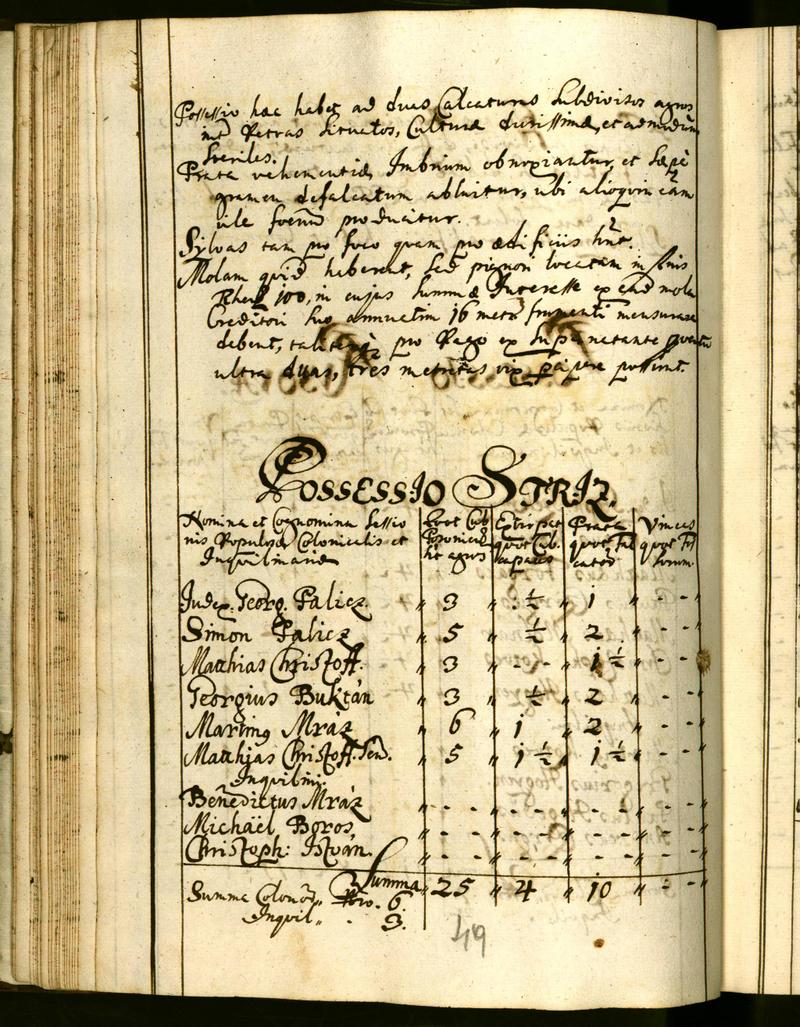 Possessio hæc habet ad duas Calcaturas subdivisos agros
inter Petras situatos, Culturæ durissimæ, et admodum
steriles.
Prata vehementiæ Imbrium obnoxiantur, et sæpe
gramen defalcatum abluitur, ubi alioquin etiam
vile foenum producitur.
Sylvas tam pro foco quam pro ædificiis hnt.
Molam quid. haberent, sed pignori locatam in finis
Rhen 100, in cujus summæ Interesse ex ead mola
Creditori suo annuatim 16 metr frumenti mensurare
debent, taliter pro Pago ex superaetante
ultra duas, tres metretas vix capere possunt.
POSSESSIO STRIZ.
Nomina et Cognomina Sessio
nis Populosæ Colonicalis et
Inquilinariæ
quot Cub
Posonical
hic agros
Extirpat
quot Cub.
capaces
Prata
quot Fal
cator
Vineas
quot Fos
sorum
Judex. Georg. Palicz. " 3 " ½ " 1 " - - "
Simon Palicz " 5 " ½ " 2 " - - "
Matthias Christoff. " 3 " - - " 1 ½ " - - "
Georgius Buktán " 3 " ½ " 2 " - - "
Marting Mráz " 6 " 1 " 2 " - - "
Matthias Christoff. Sen. " 5 " 1 ½ " 1 ½ " - - "
Inquilini.
Benedictus Mráz " - - " - - " - - " - - "
Michaël Boros " - - " - - " - - " - - "
Christoph: István. " - - " - - " - - " - - "
Summa " 25 " 4 " 10 " - - "
Summa Colonor " Nro. 6.
Inquil " - 3.
49